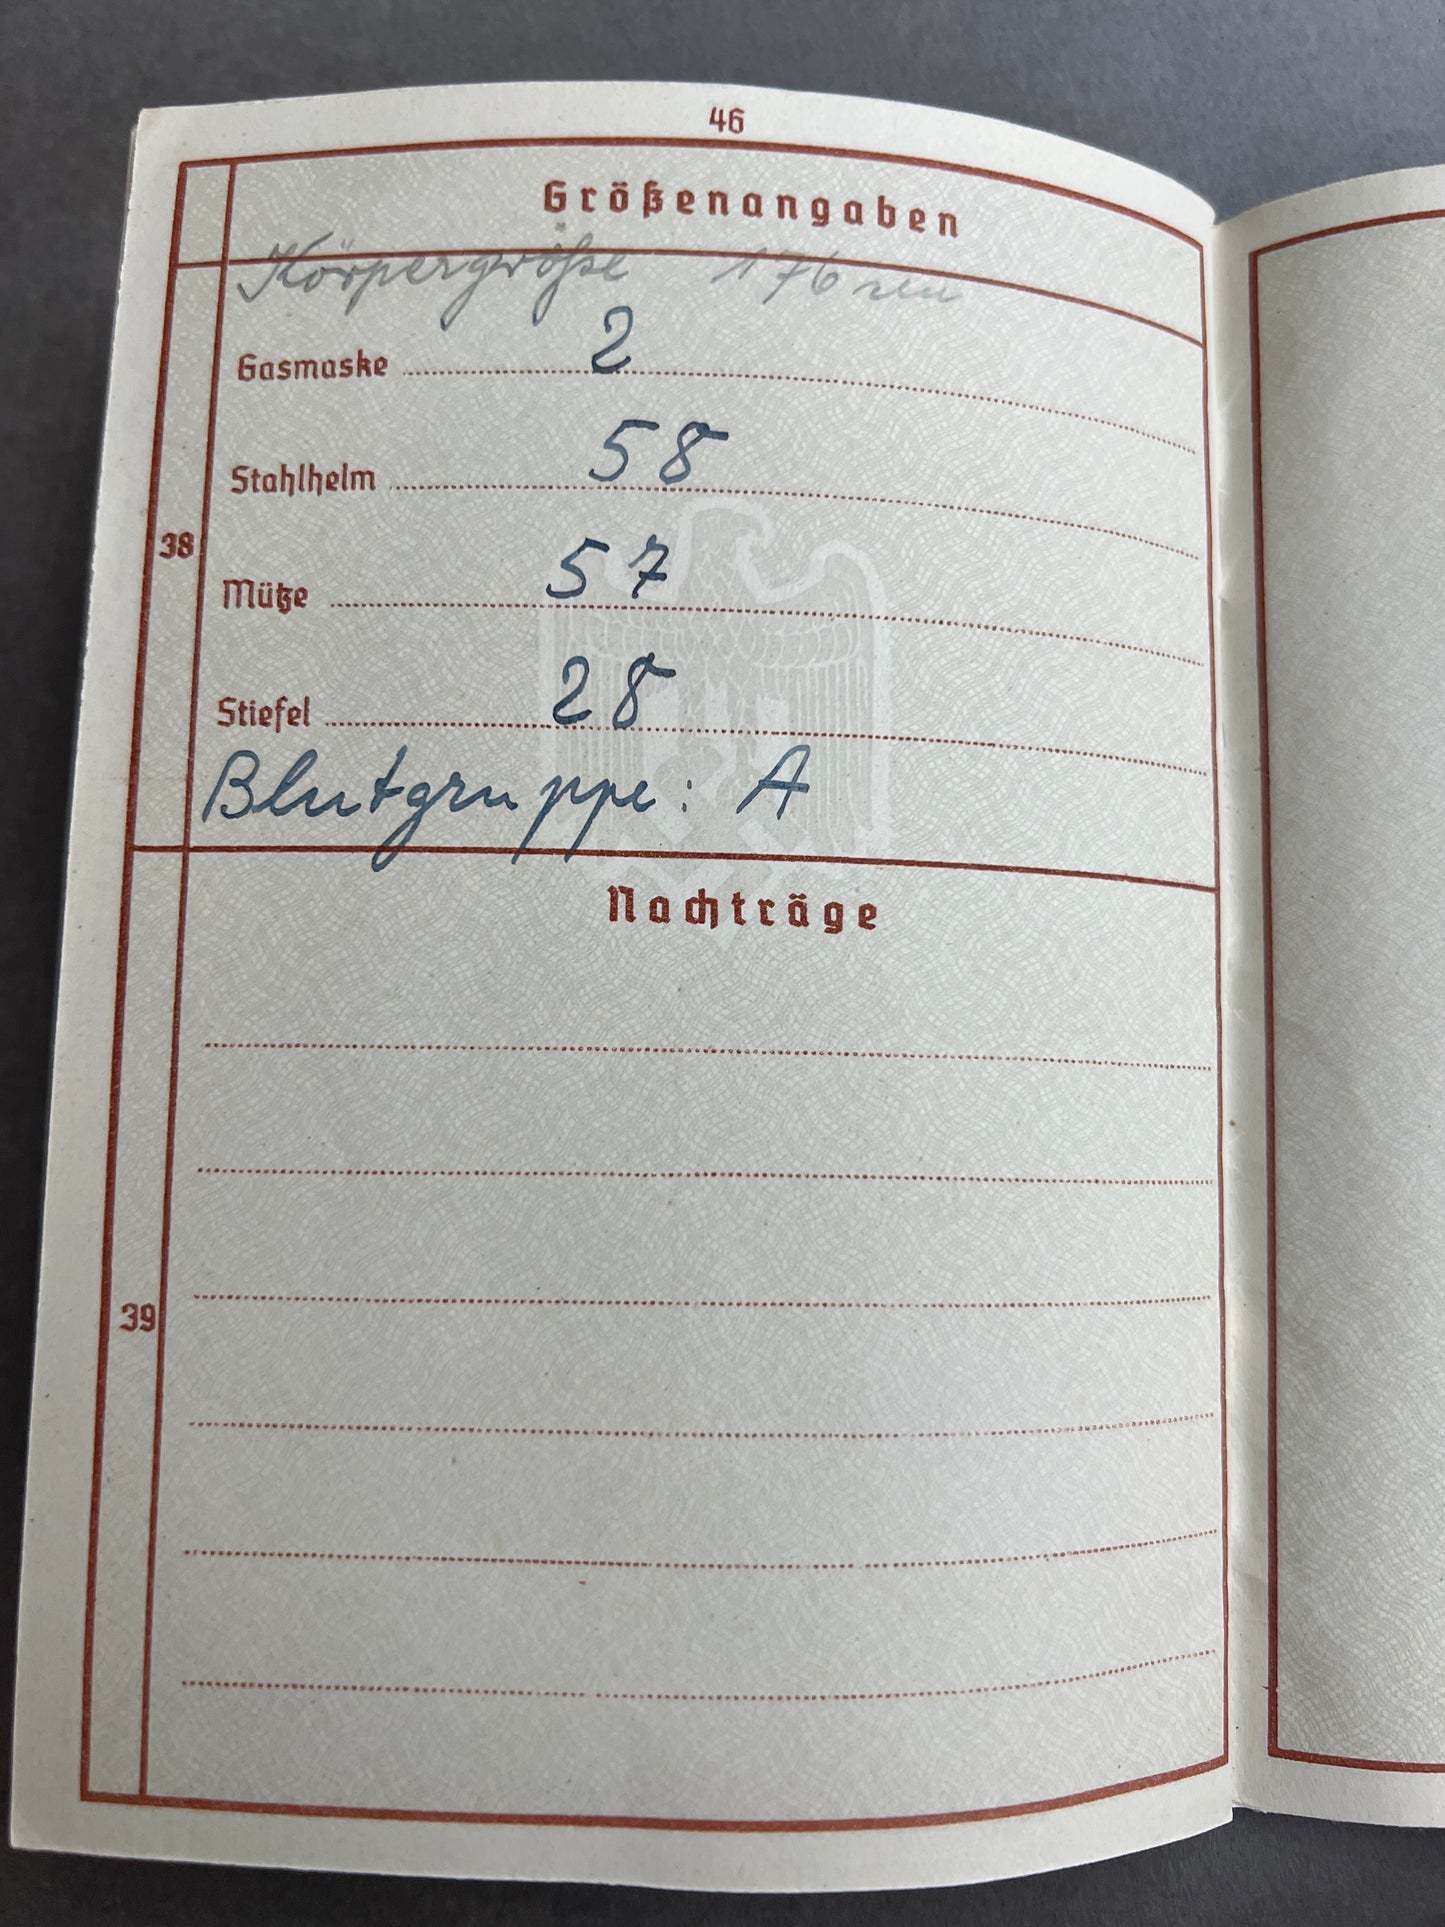 46
Größenangaben
Körpergröße 176 cm
Gasmaske 2
Stahlhelm 58
38
Mütze 57
Stiefel 28
Blutgruppe: A
Nachträge
39